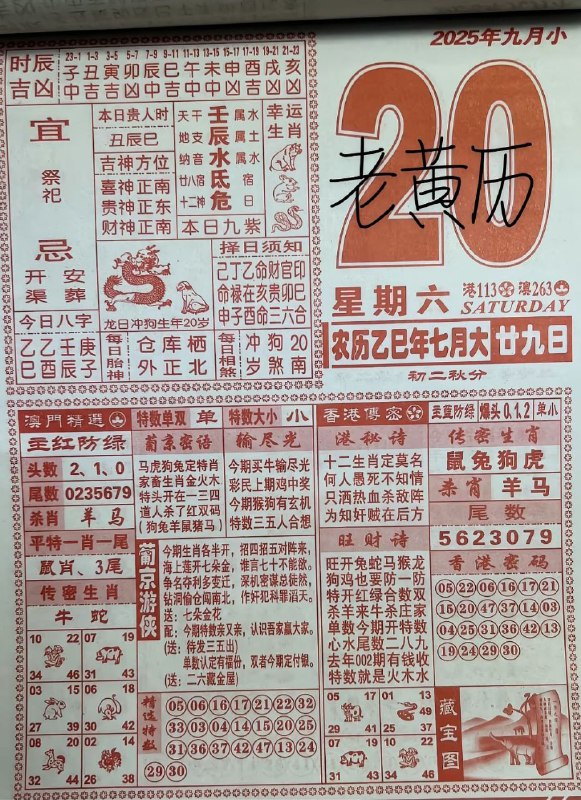 2025年九月小
时辰 23-1 1-3 3-5 5-7 7-9 9-11 11-13 13-15 15-17 17-19 19-21 21-23
子丑寅卯辰巳午未申酉戌亥
吉凶 中吉吉凶中吉凶中吉凶凶凶
宜
祭祀
忌
开渠 安葬
本日贵人时
丑辰巳
吉神方位
喜神正南
贵神正东
财神正南
天干 壬 属水
地支 辰 属土
纳音 水 属水
廿八宿 氐 宿
十二神 危 日
本日九紫
幸运生肖
龙日冲狗生年20岁
择日须知
己丁乙命财官印
命禄在亥贵卯巳
申子酉命三六合
今日八字
乙乙壬庚
巳酉辰子
每日胎神
仓库栖
外正北
每日相煞
冲狗20
岁煞南
20
老黄历
星期六
港113 澳263
SATURDAY
农历乙巳年七月大 廿九日
初二秋分
澳門精選
特数单双 单
特数大小 小
主红防绿
头数 2、1、0
尾数 0235679
杀肖 羊马
平特一肖一尾
鼠肖、3尾
传密生肖
牛 蛇
葡京密语
马虎狗兔定特肖
家畜生肖金火木
特头开在一三四
道人杀了红双码
(狗兔羊鼠猪马)
输尽光
今期买牛输尽光
彩民上期鸡中奖
今期猴狗有玄机
特数三五人合想
葡京游侠
今期生肖各半开，招四招五对阵来，
海上莲开七朵金，谁言七十不能欲。
争名夺利多变迁，深机密谋总徒然，
钻洞偷仓闯南北，作奸犯科罪滔天。
送：七朵金花
配：今期特数亲又亲，认识吾家赢大家。
(送：待发三五出)
单数认定有福份，双者今期定付银。
(送：二六藏金屋)
10 22 07 19
34 46 31 43
03 15 06 18
27 39 30 42
08 20 02 14
32 44 26 38
精选特数
05 06 16 17 21 22 32
33 03 04 14 15 20 25
31 36 37 42 47 13 24
29 30
香港傳密
主蓝防绿 爆头0.1.2 单小
港秘诗
十二生肖定莫名
何人愚死不知情
只洒热血杀敌阵
为知奸贼在后方
旺财诗
旺开兔蛇马猴龙
狗鸡也要防一防
特开红绿合数双
杀羊来牛杀庄家
单数今期开特数
心水尾数二八九
去年002期有钱收
特数就是火木水
传密生肖
鼠兔狗虎
杀肖 羊马
尾数
5623079
香港密码
05 22 06 16 17 21
09 10 07 34 14 03
04 25 31 36 42 13
19 24 29 30
05 17 01 13
29 41 25 37 49
07 19 10 22
31 43 34 46
藏宝图